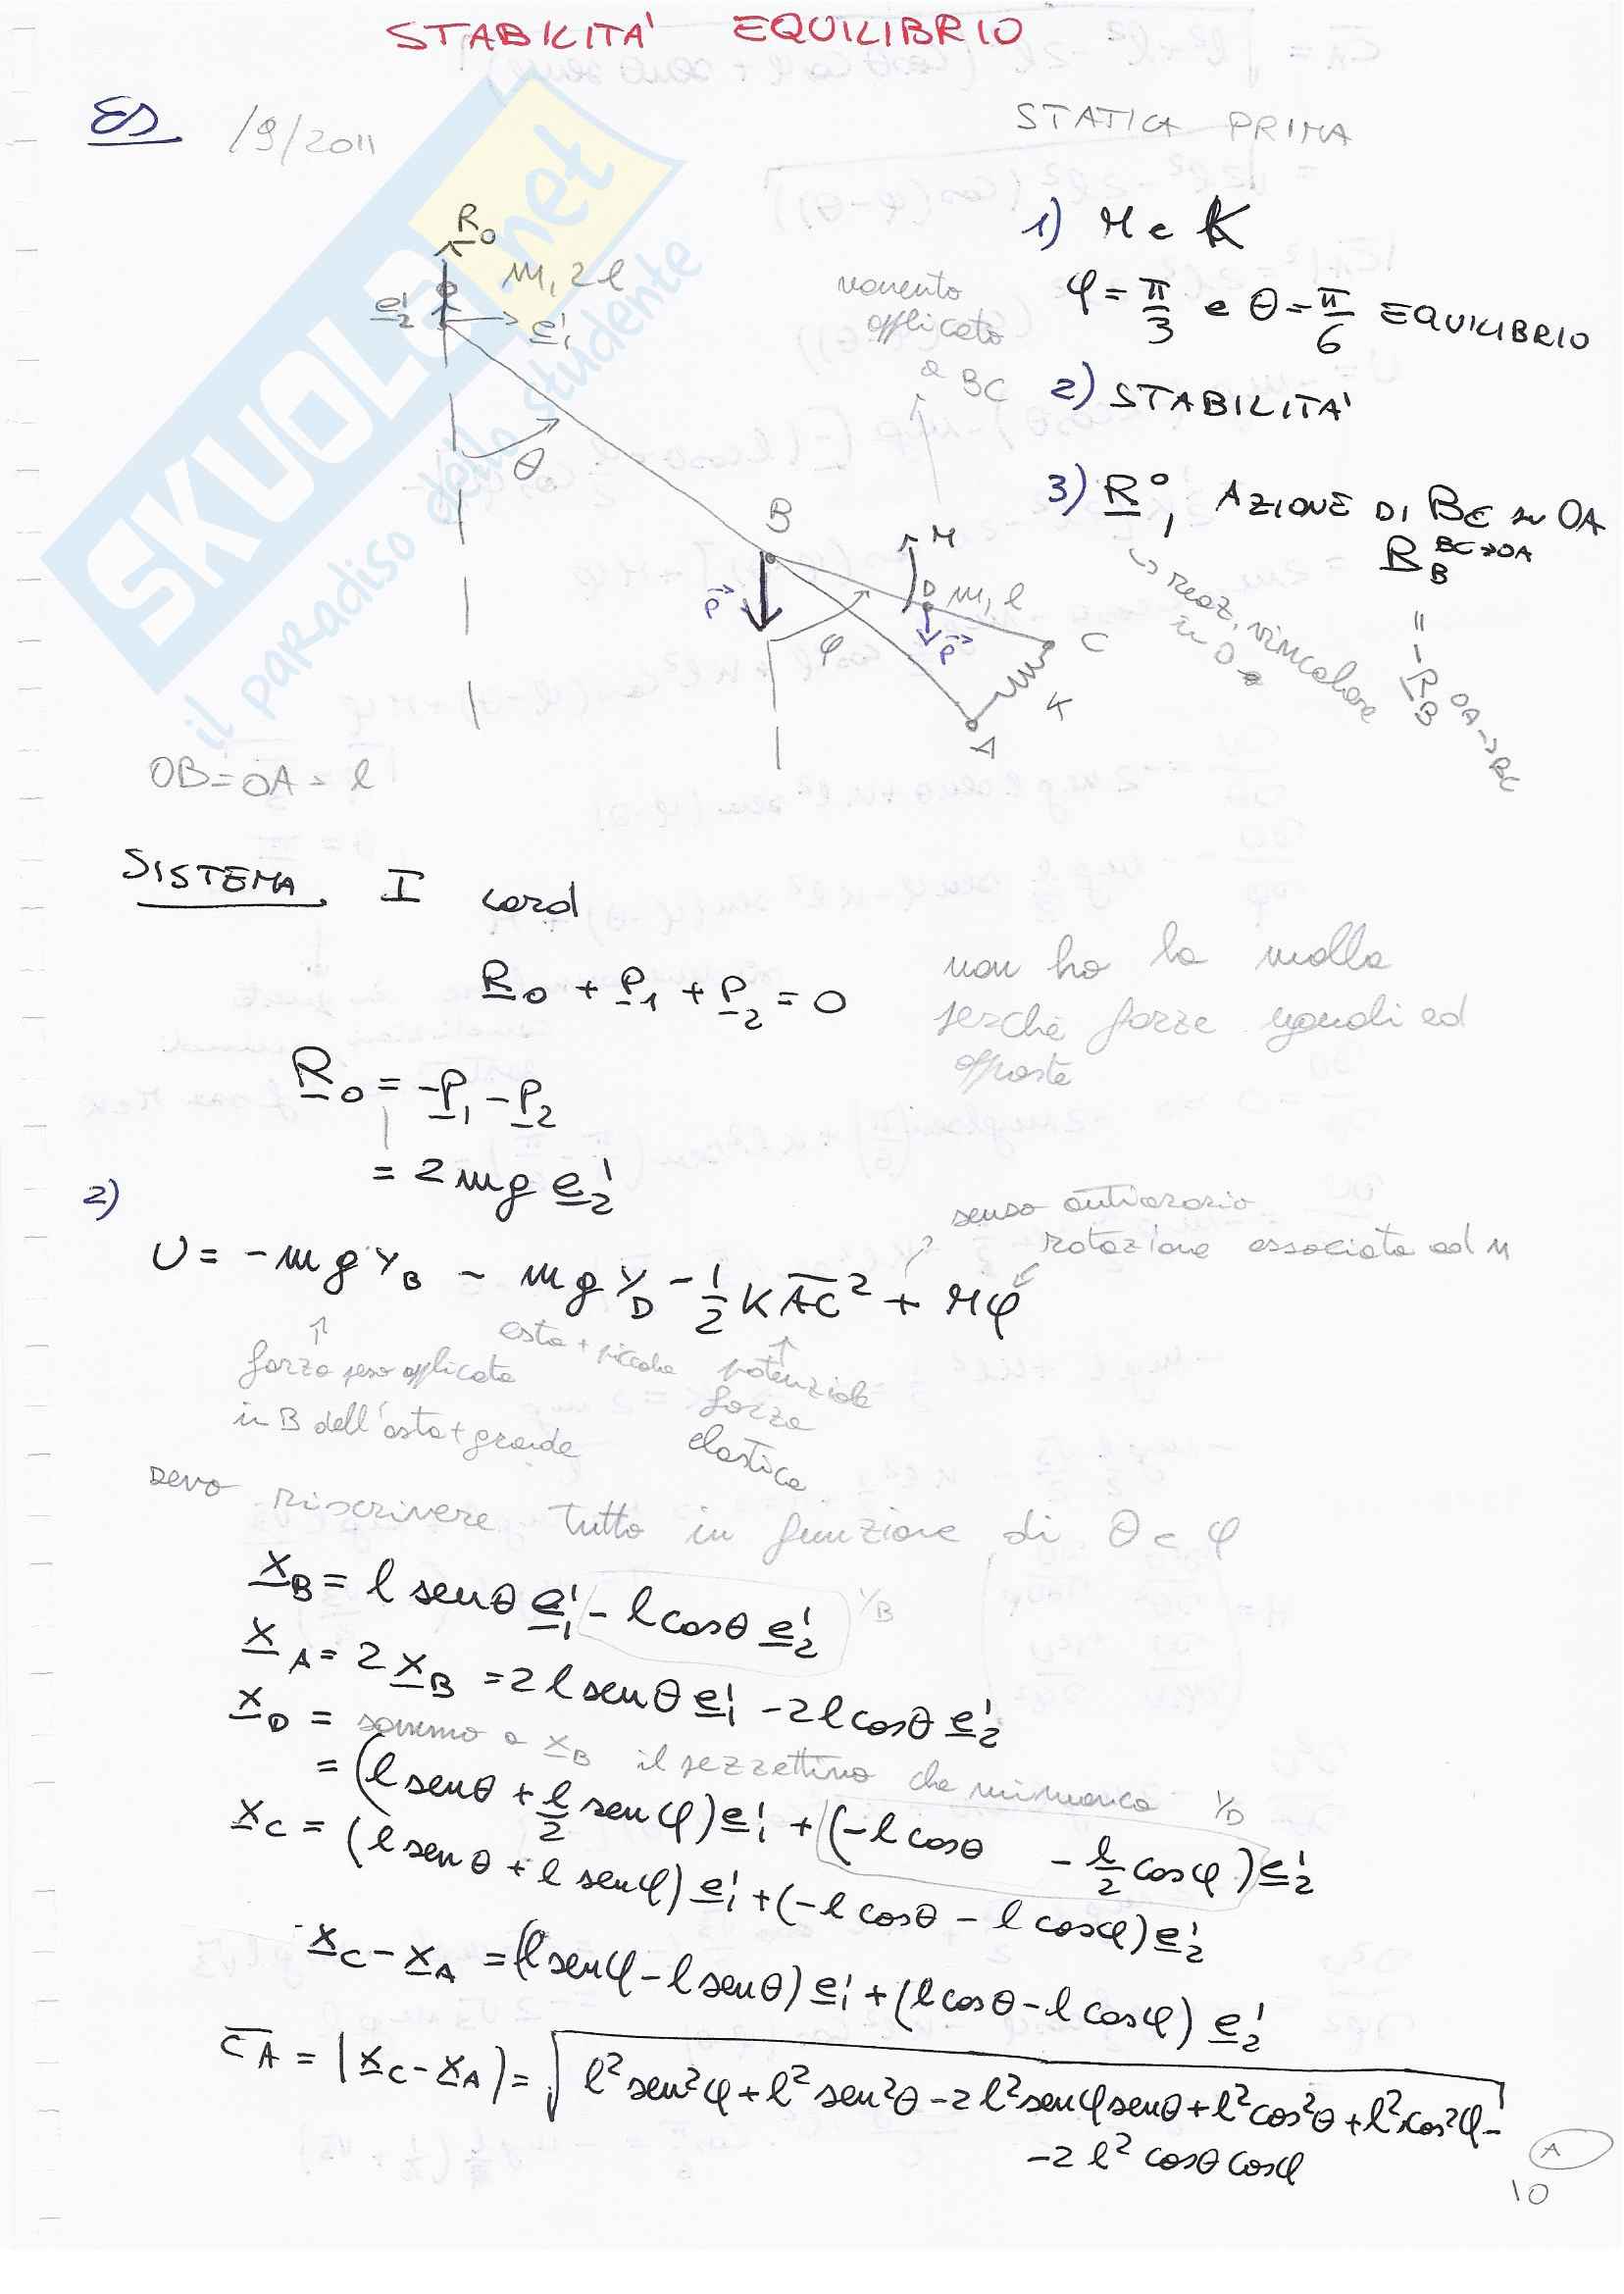 STABILITA' EQUILIBRIO
ES /9/2011
STATICA PRIMA
1) M e K
φ = π/3 e θ = π/6 EQUILIBRIO
2) STABILITA'
3) R⁰, AZIONE DI BC su OA
R_B^{BC→OA}
= -R_B^{OA→BC}
↳ reaz. vincolare in O
R_O
m, 2l
e'_2
e'_1
θ
momento
applicato
a BC
B
M
D
m, l
C
P
φ
P
K
A
OB = OA = l
SISTEMA I card
R_O + P_1 + P_2 = 0
non ho la molla
perché forze uguali ed
opposte
R_O = -P_1 - P_2
= 2mg e'_2
2)
senso antiorario
rotazione associata ad M
U = -mg y_B - mg y_D - 1/2 K AC² + Mφ
forza peso applicata
in B dell'asta + grande
asta + piccola
potenziale
forza
elastica
devo riscrivere tutto in funzione di θ e φ
x_B = l senθ e'_1 - l cosθ e'_2 y_B
x_A = 2 x_B = 2l senθ e'_1 - 2l cosθ e'_2
x_D = sommo a x_B il pezzettino che mi manca y_D
= (l senθ + l/2 senφ) e'_1 + (-l cosθ - l/2 cosφ) e'_2
x_C = (l senθ + l senφ) e'_1 + (-l cosθ - l cosφ) e'_2
x_C - x_A = (l senφ - l senθ) e'_1 + (l cosθ - l cosφ) e'_2
CA = |x_C - x_A| = √ l² sen²φ + l² sen²θ - 2l² senφ senθ + l² cos²θ + l² cos²φ -
- 2l² cosθ cosφ
A
10
SKUOLA.net
il paradiso dello studente